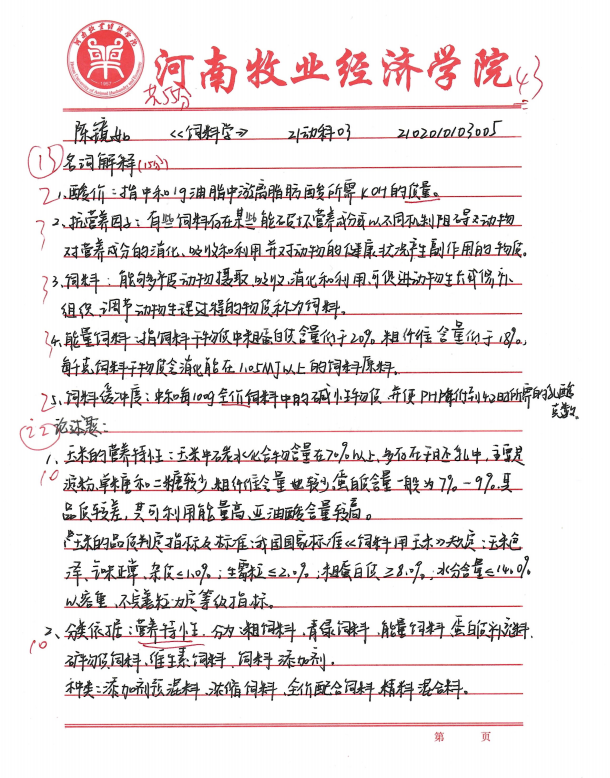 河南牧业经济学院 43
共55分
陈镜如 《饲料学》 21动科03 2102010103005
13 名词解释(15分)
2 1、酸价：指中和1g油脂中游离脂肪酸所需KOH的质量。
3 2、抗营养因子：有些饲料存在某些能破坏营养成分或以不同机制阻碍动物
对营养成分的消化、吸收和利用并对动物的健康状况产生副作用的物质。
3 3、饲料：能够被动物摄取、吸收、消化和利用,可促进动物生长或修补
组织、调节动物生理过程的物质称为饲料。
3 4、能量饲料：指饲料干物质中粗蛋白质含量低于20%,粗纤维含量低于18%,
每千克饲料干物质含消化能在1.05MJ以上的饲料原料。
2 5、饲料缓冲度：中和每100g全价饲料中的碱性物质,并使PH降低到4时所需的乳酸
克数。
22 论述题：
10 1、玉米的营养特性：玉米中碳水化合物含量在70%以上,多存在于胚乳中,主要是
淀粉,单糖和二糖较少,粗纤维含量也较少,蛋白质含量一般为7%-9%,其
品质较差,其可利用能量高,亚油酸含量较高。
玉米的品质判定指标及标准：我国国家标准《饲料用玉米》规定：玉米色
泽、气味正常,杂质≤1.0%；生霉粒≤2.0%；粗蛋白质≥8.0%；水分含量≤14.0%
以容重、不完善粒为定等级指标。
10 2、分类依据：营养特性,分为：粗饲料,青绿饲料,能量饲料,蛋白质补充料,
矿物质饲料,维生素饲料,饲料添加剂。
种类：添加剂预混料,浓缩饲料,全价配合饲料,精料混合料。
第 页